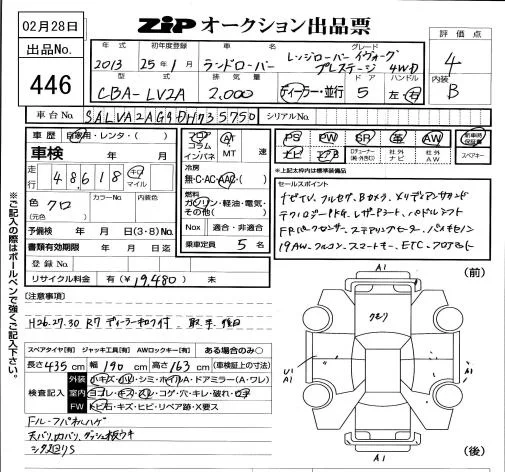 02月28日
ZIP オークション出品票
評価点
出品No.
446
年式 初年度登録 車名 グレード
2013 25年1月 ランドローバー レンジローバー イヴォーグ プレステージ 4WD
4
型式 排気量 ドア ハンドル
CBA-LV2A 2,000 ディーラー・並行 5 左・右
内装
B
車台No. SALVA2AG9DH735750 シリアルNo.
車歴 自家用・レンタ・( )
フロア コラム インパネ AT MT 速
PS PW SR 革 AW 新車時保証書
ナビ エアB Dチューナー(純・外含む) 社外ナビ 社外AW スペアキー
※上記太枠内は標準装備品
車検 年 月
走行 48,618 キロ マイル
冷房
無・C・AC・AAC・( )
燃料
ガソリン・軽油・電気・その他( )
色 クロ カラーNo. 内装色
(元色)
Nox 適合・非適合
予備検 年 月 日(3・8)No.
書類有効期限 年 月 日迄
乗車定員 5 名
登録No.
リサイクル料金 有(¥19,480) 未
セールスポイント
ナビTV、フルセグ、Bカメラ、メリディアンサウンド
テクノロジーPKG、レザーシート、パドルシフト
FRパークセンサー、ステアリングヒーター、パノキセノン
19AW、フルコン、スマートキー、ETC、フロアマット
※ご記入の際はボールペンで強くご記入下さい。
【注意事項】
H26.27.30 R7 ディーラー記録付 取・手 後日
スペアタイヤ【有】 ジャッキ工具【有】 AWロックキー【有】 ある場合のみ○
長さ 435 cm 幅 190 cm 高さ 163 cm (車検証上の寸法)
検査記入
外装 小キズ・小U・シミ・ホイルA・ドアミラー(A・ワレ)
室内 ヨゴレ・キズ・スレ・コゲ・穴・キレ・破れ・
FW トビ石・キズ・ヒビ・リペア跡・X要ス
天バリ、内バリ、ダッシュ板ウキ
(前)
A1
U1
A1
A1
A1
(後)